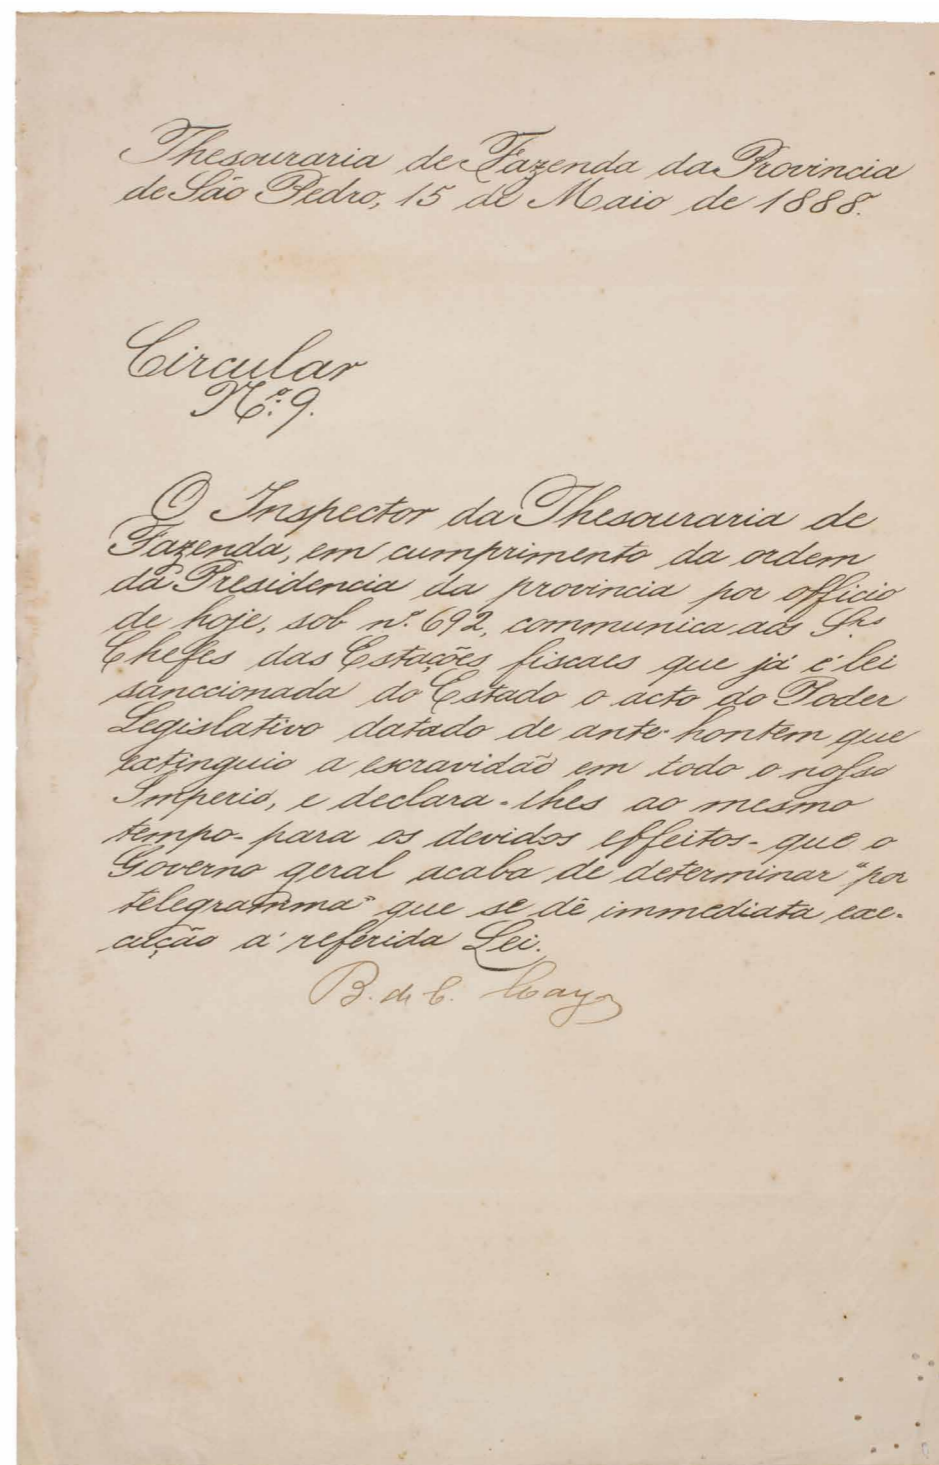 Thesouraria de Fazenda da Provincia
de São Pedro, 15 de Maio de 1888.
Circular
N.º 9.
O Inspector da Thesouraria de
Fazenda, em cumprimento da ordem
da Presidencia da provincia por officio
de hoje, sob n.º 692, communica aos Srs
Chefes das Estações fiscaes que já é lei
sanccionada do Estado o acto do Poder
Legislativo datado de ante-hontem que
extinguio a escravidão em todo o nosso
Imperio, e declara-lhes ao mesmo
tempo - para os devidos effeitos - que o
Governo geral acaba de determinar "por
telegramma" que se dê immediata exe-
cução á referida Lei.
B. de C.